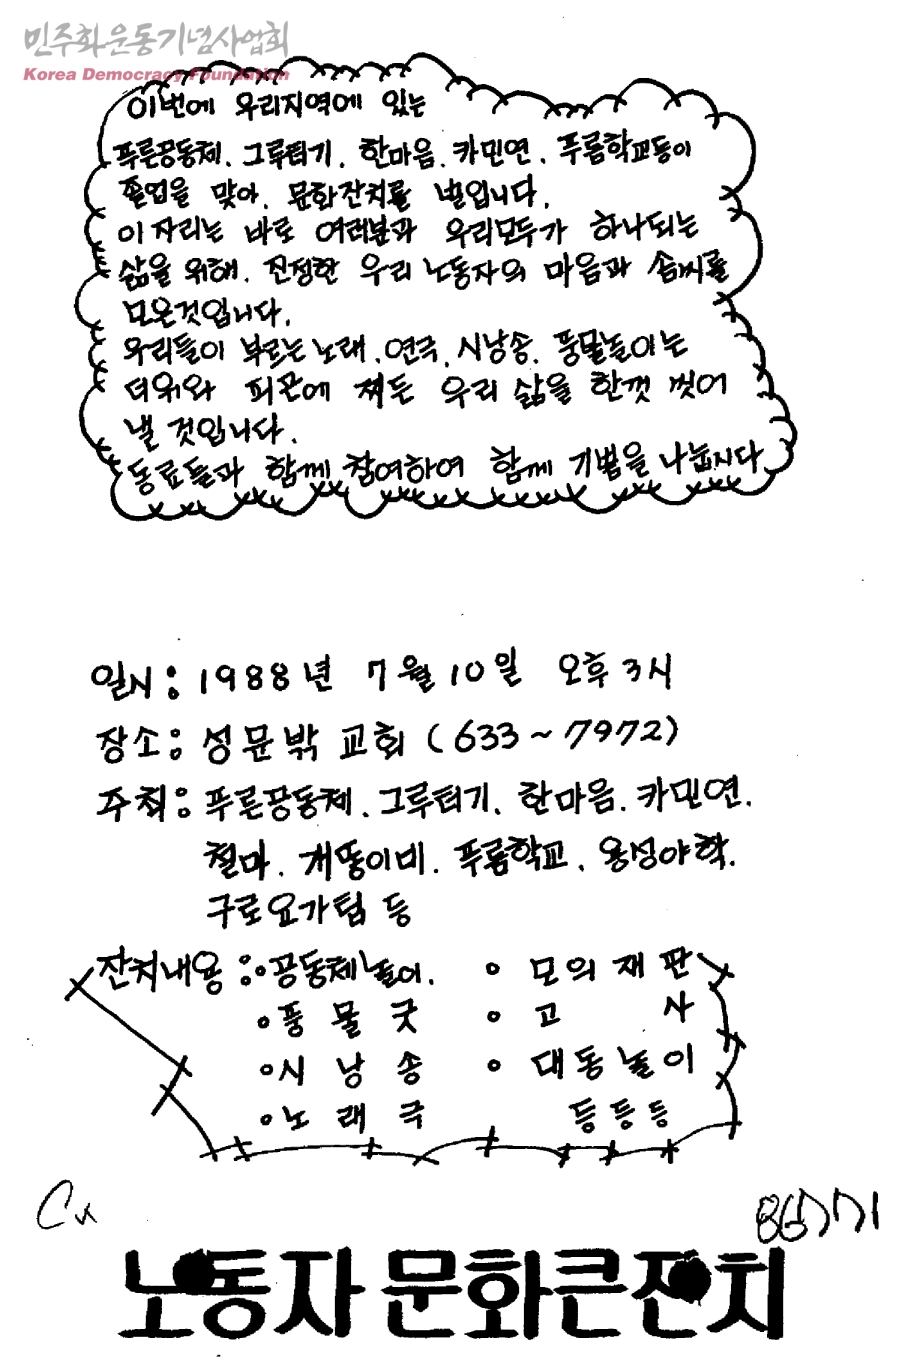 민주화운동기념사업회
Korea Democracy Foundation
이번에 우리지역에 있는
푸른공동체. 그루터기. 한마음. 카민연. 푸름학교등이
졸업을 맞아. 문화잔치를 벌입니다.
이 자리는 바로 여러분과 우리모두가 하나되는
삶을 위해. 진정한 우리 노동자의 마음과 솜씨를
모은것입니다.
우리들이 부르는 노래. 연극. 시낭송. 풍물놀이는
더위와 피곤에 쩌든 우리 삶을 한껏 씻어
낼 것입니다.
동료들과 함께 참여하여 함께 기쁨을 나눕시다
일시: 1988년 7월 10일 오후 3시
장소: 성문밖 교회 (633~7972)
주최: 푸른공동체. 그루터기. 한마음. 카민연.
철마. 개똥이네. 푸름학교. 용성야학.
구로요가팀 등
잔치내용: o공동체놀이. o 모의재판
o풍물굿 o 고 사
o시낭송 o 대동놀이
o노래극 등등등
노동자 문화큰잔치